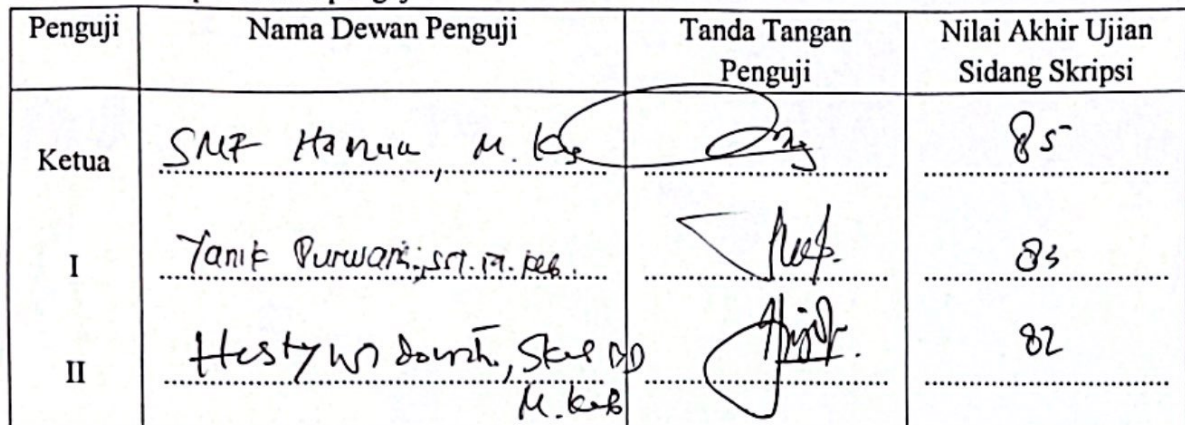 Penguji Nama Dewan Penguji Tanda Tangan Penguji Nilai Akhir Ujian Sidang Skripsi
Ketua SMF Hanua, M. Kes 85
I Yanik Purwanti, SST. M. Keb. 83
II Hesty Widowati, Skep 82
M. Keb